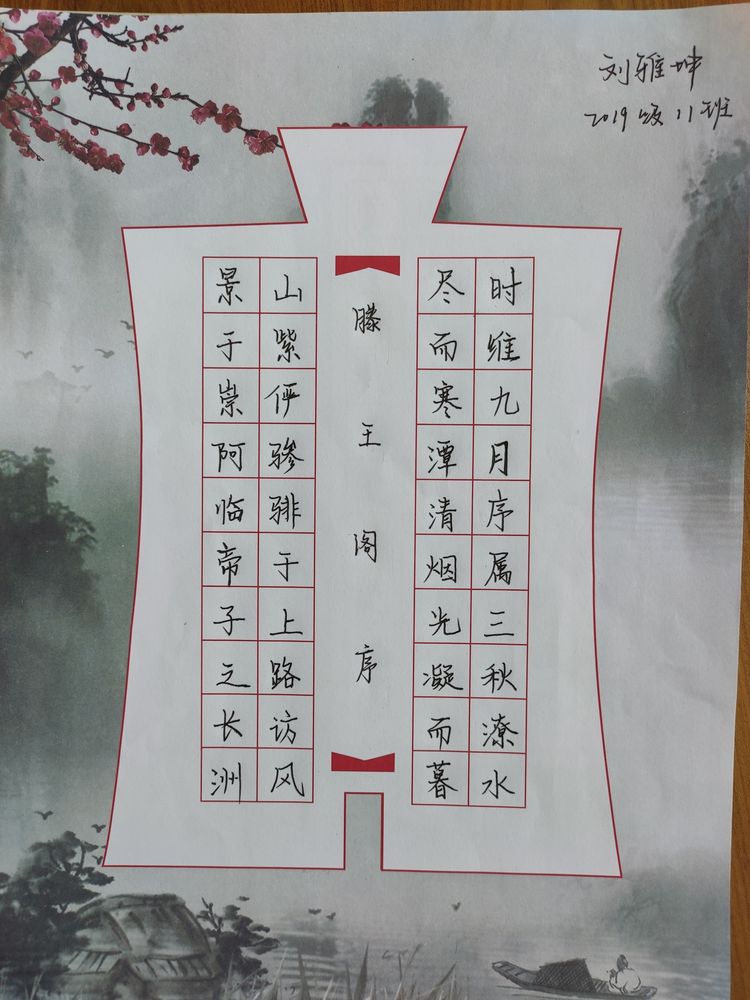 刘雅坤
2019级11班
时维九月序属三秋潦水
尽而寒潭清烟光凝而暮
滕王阁序
山紫俨骖𬴂于上路访风
景于崇阿临帝子之长洲